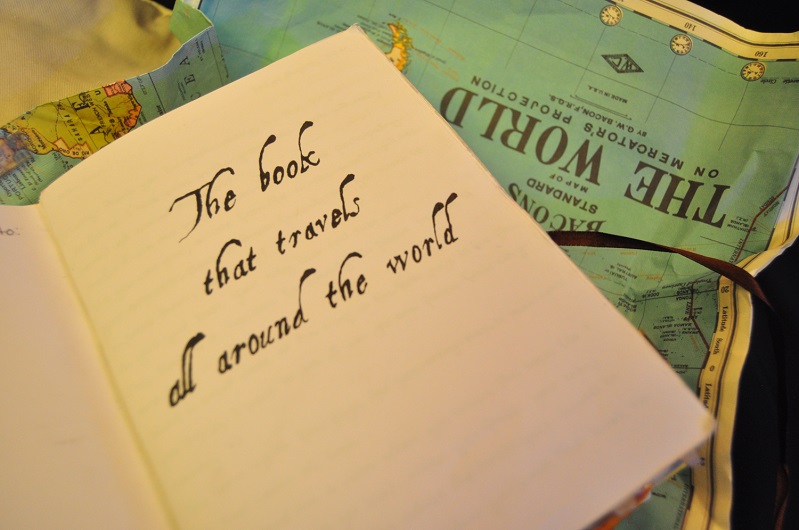 The book
that travels
all around the world
to:
BACONS
STANDARD
MAP OF
THE WORLD
ON MERCATOR'S PROJECTION
BY G.W. BACON, F.R.G.S.
MADE IN U.S.A.
140
160
20
Latitude South